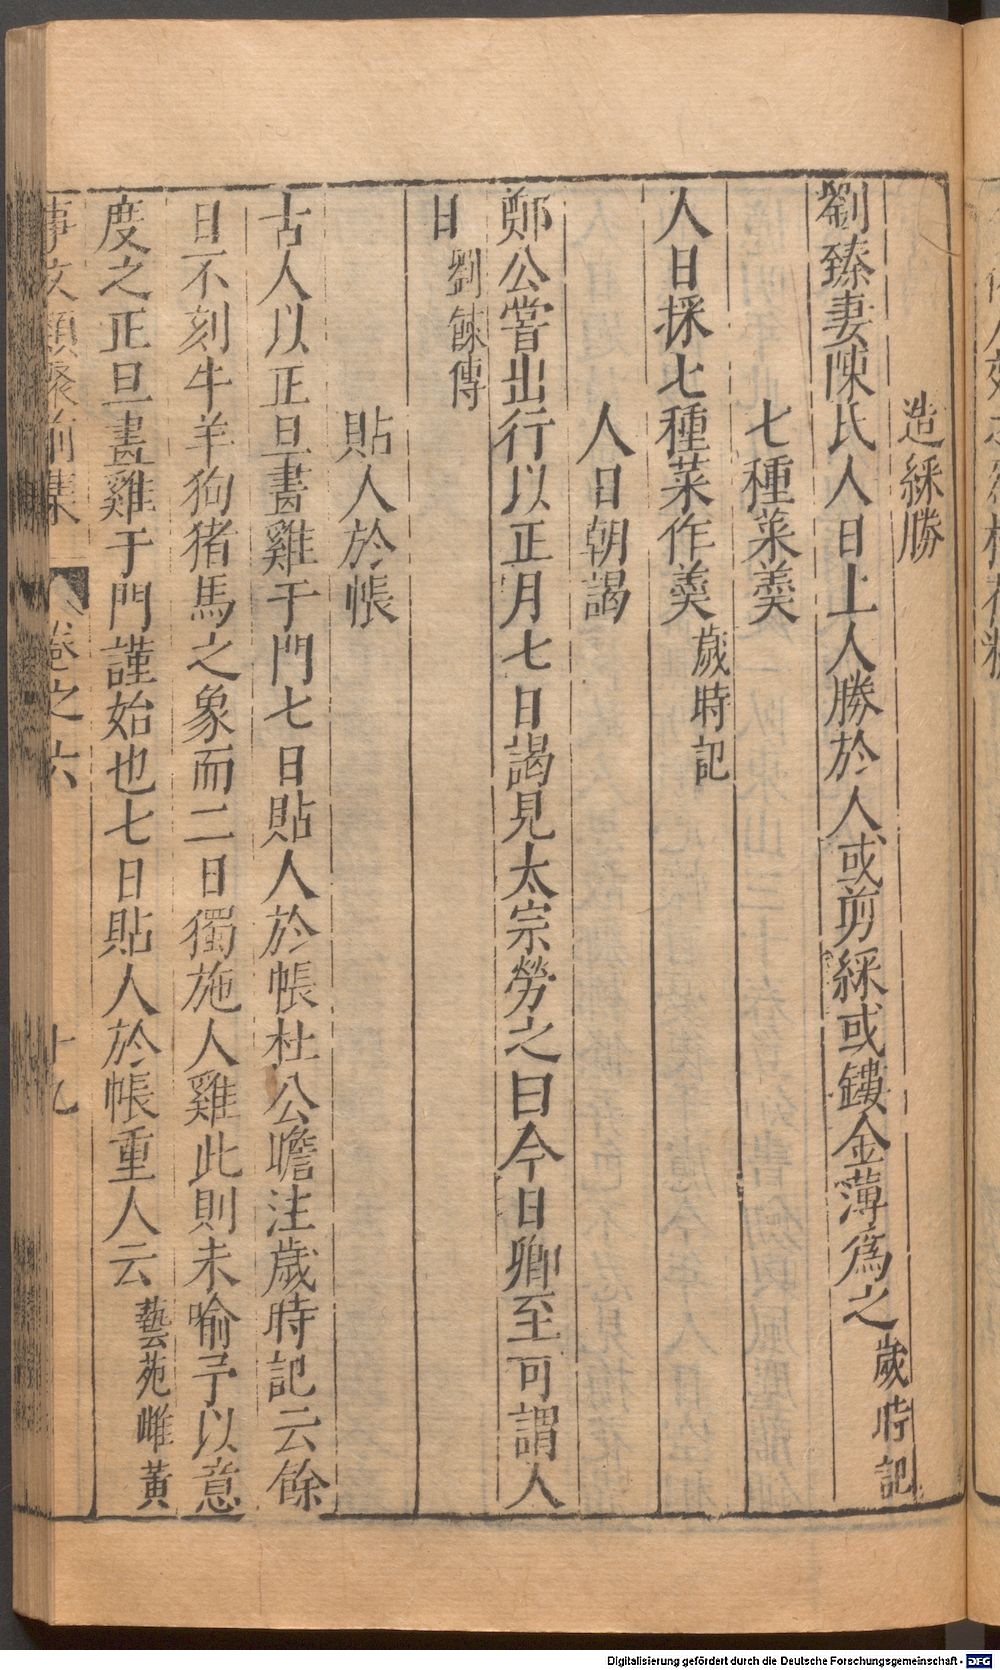 造綵勝
劉臻妻陳氏人日上人勝於人或剪綵或鏤金薄爲之歲時記
七種菜羹
人日採七種菜作羹歲時記
人日朝謁
鄭公嘗出行以正月七日謁見太宗勞之曰今日卿至可謂人
日劉餗傳
貼人於帳
古人以正旦畫雞于門七日貼人於帳杜公瞻注歲時記云餘
日不刻牛羊狗猪馬之象而二日獨施人雞此則未喻予以意
度之正旦畫雞于門謹始也七日貼人於帳重人云藝苑雌黃
事文類聚前集 卷之六 十九
Digitalisierung gefördert durch die Deutsche Forschungsgemeinschaft - DFG